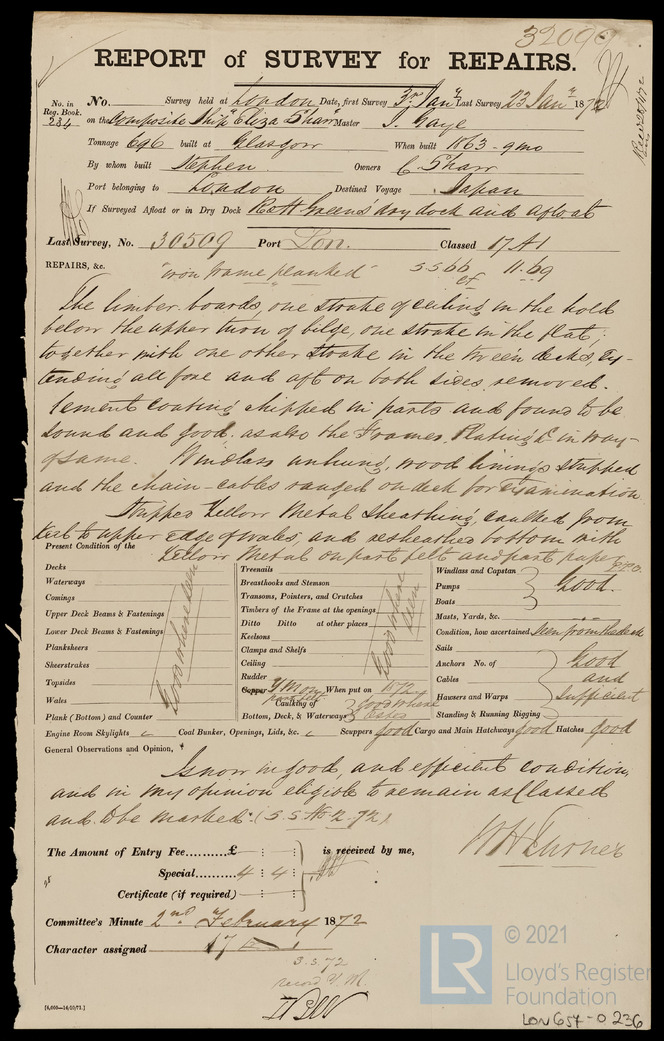 32096
REPORT of SURVEY for REPAIRS.
No. in Reg. Book. 234
No. Survey held at London Date, first Survey 3rd Jany Last Survey 23 Jany 1872
on the Composite Ship "Eliza Shaw" Master J. Gaye
Tonnage 696 built at Glasgow When built 1863 - 9mo
By whom built Stephen Owners C Shaw
Port belonging to London Destined Voyage Japan
If Surveyed Afloat or in Dry Dock R & H Green's dry dock and afloat
Last Survey, No. 30509 Port Lon. Classed 17 A1
REPAIRS, &c. "iron frame planked" S.S 66 11.69
The limber boards, one strake of ceiling in the hold
below the upper turn of bilge, one strake in the flat,
together with one other strake in the tween decks, ex-
tending all fore and aft on both sides removed.
Cement coating chipped in parts and found to be
sound and good, as also the Frames, Plating &c in way
of same. Windlass unhung, wood linings stripped
and the chain-cables ranged on deck for examination
Stripped Yellow Metal sheathing, caulked from
keel to upper edge of wales, and resheathed bottom with
Yellow Metal on part felt and part paper
Present Condition of the
Decks
Waterways
Comings
Upper Deck Beams & Fastenings
Lower Deck Beams & Fastenings
Planksheers
Sheerstrakes
Topsides
Wales
Plank (Bottom) and Counter
Good where seen
Treenails
Breasthooks and Stemson
Transoms, Pointers, and Crutches
Timbers of the Frame at the openings
Ditto Ditto at other places
Keelsons
Clamps and Shelfs
Ceiling
Rudder
Good where seen
Copper Y M on part felt When put on 1872
Caulking of Bottom, Deck, & Waterways good where
Windlass and Capstan
Pumps
Boats
Good.
Masts, Yards, &c.
Condition, how ascertained Seen from the deck
Sails
Anchors No. of
Cables
Hawsers and Warps
Standing & Running Rigging
Good and Sufficient
Engine Room Skylights Coal Bunker, Openings, Lids, &c. Scuppers good Cargo and Main Hatchways good Hatches good
General Observations and Opinion,
Is now in good, and efficient condition,
and in my opinion eligible to remain as Classed
and to be marked (S.S. No 2-72)
W H Turner
The Amount of Entry Fee.........£ : : is received by me,
Special......... 4 : 4 :
Certificate (if required) : :
Committee's Minute 2nd February 1872
Character assigned 17
S.S.72
record Y.M.
[6,000—14/10/71.]
© 2021
LR
Lloyd's Register
Foundation
LON 657-0236